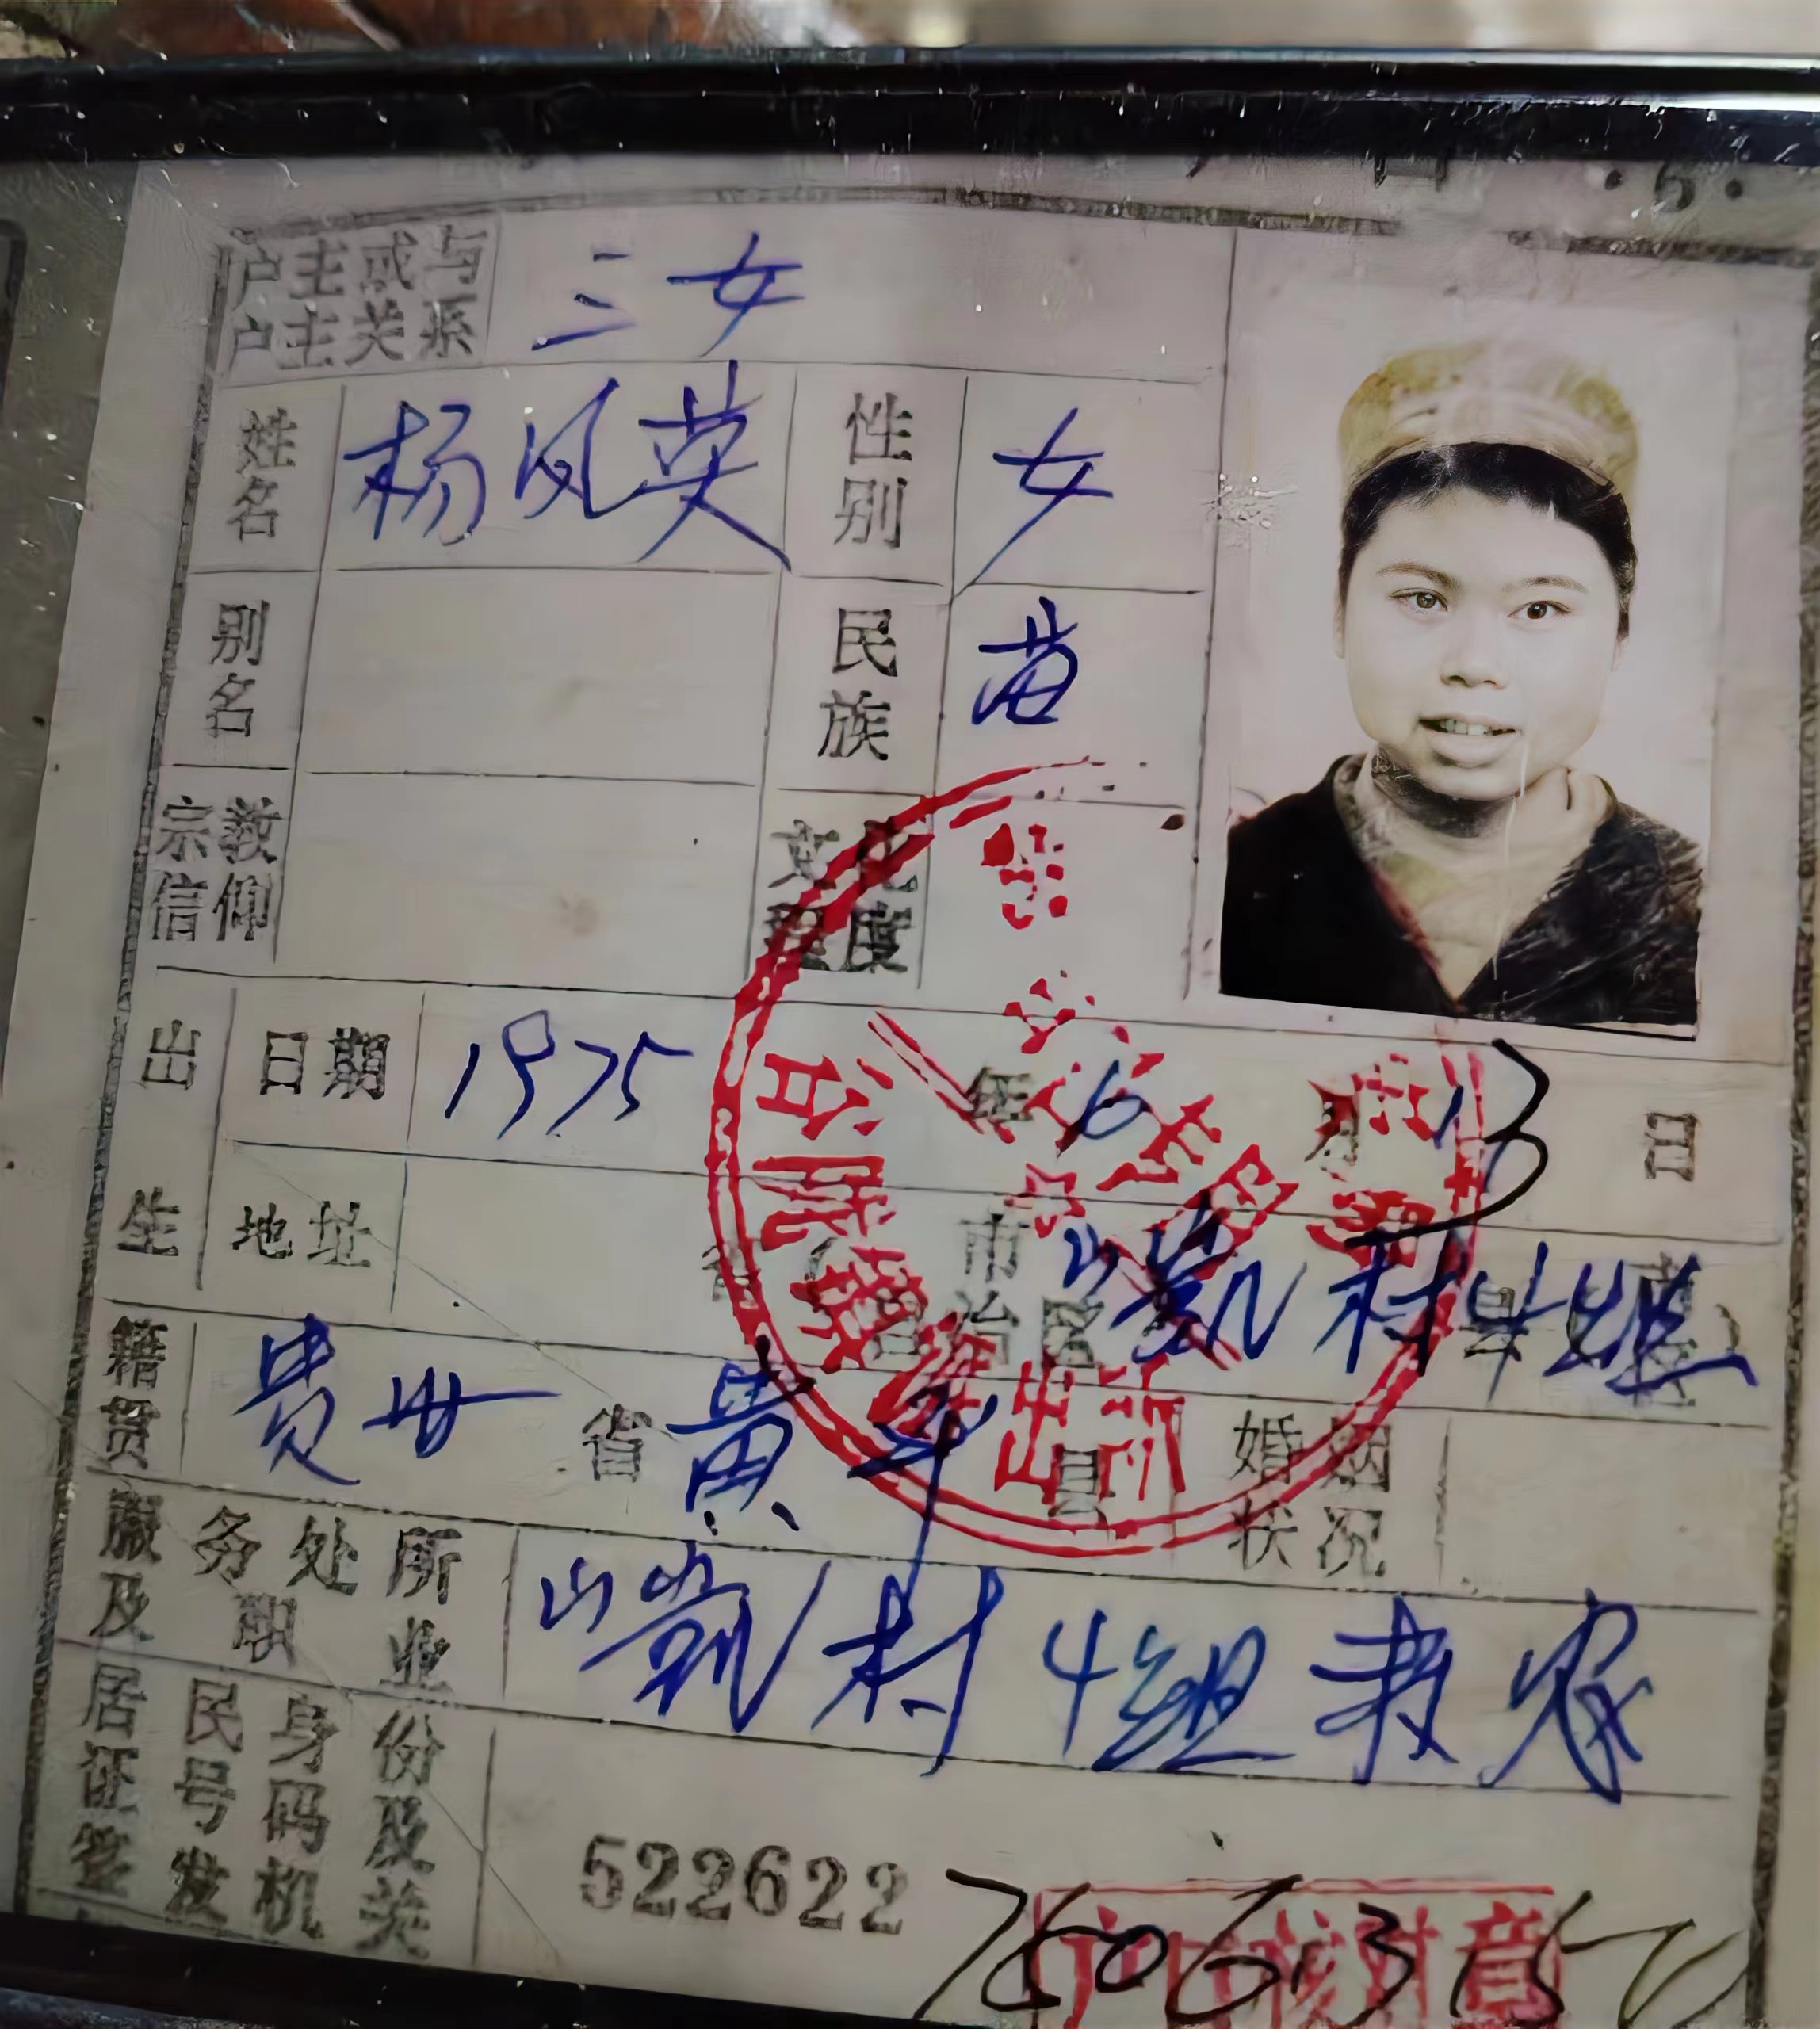 ·5·
户主或与户主关系 三女
姓名 杨凤英 性别 女
别名 民族 苗
宗教信仰 文化程度
出生 日期 1975 年 6 月 13 日
地址 省 市 自治区 山凯村4组 县
籍贯 贵州 省 黄平 县 婚姻状况
服务处所及职业 山凯村4组 务农
居民身份证号码及签发机关 522622